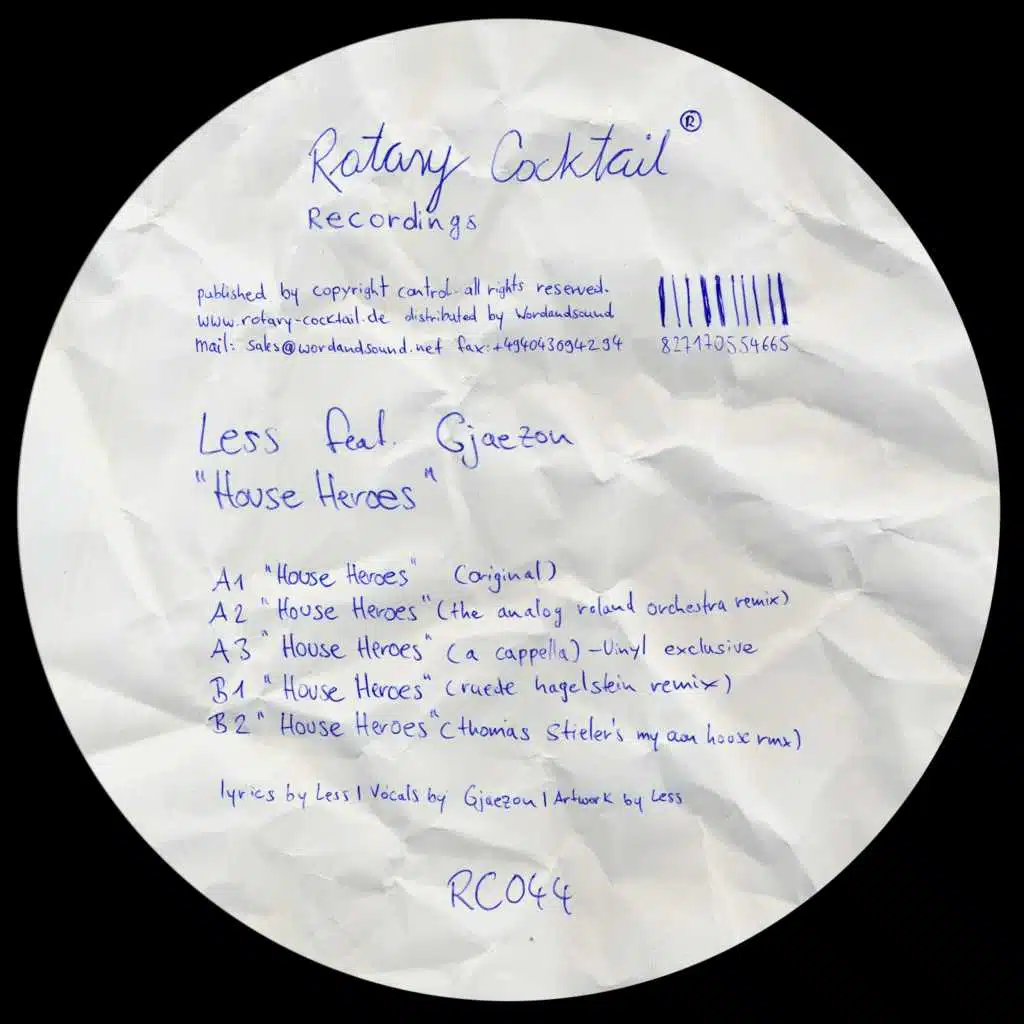 Rotary Cocktail ®
Recordings
published by copyright control. all rights reserved.
www.rotary-cocktail.de distributed by Wordandsound
mail: sales@wordandsound.net fax:+494043094294
827170554665
Less feat. Gjaezon
"House Heroes"
A1 "House Heroes" (original)
A2 "House Heroes" (the analog roland orchestra remix)
A3 "House Heroes" (a cappella) - Vinyl exclusive
B1 "House Heroes" (ruede hagelstein remix)
B2 "House Heroes" (thomas Stieler's my own house rmx)
lyrics by Less | Vocals by Gjaezon | Artwork by Less
RC044